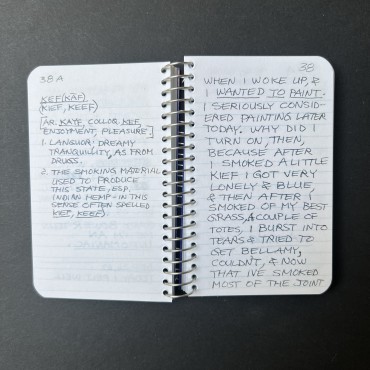 38A
KEF (KÄF)
(KIEF, KEEF)
[AR. KAYF, COLLOQ. KEF,
ENJOYMENT, PLEASURE.]
1. LANGUOR: DREAMY
TRANQUILLITY, AS FROM
DRUGS.
2. THE SMOKING MATERIAL
USED TO PRODUCE
THIS STATE, ESP.
INDIAN HEMP - IN THIS
SENSE OFTEN SPELLED
KIEF, KEEF).
38
WHEN I WOKE UP, &
I WANTED TO PAINT.
I SERIOUSLY CONSID-
ERED PAINTING LATER
TODAY. WHY DID I
TURN ON, THEN,
BECAUSE AFTER
I SMOKED A LITTLE
KIEF I GOT VERY
LONELY & BLUE,
& THEN AFTER I
SMOKED OF MY BEST
GRASS, A COUPLE OF
TOTES, I BURST INTO
TEARS & TRIED TO
GET BELLAMY,
COULDN'T, & NOW
THAT I'VE SMOKED
MOST OF THE JOINT